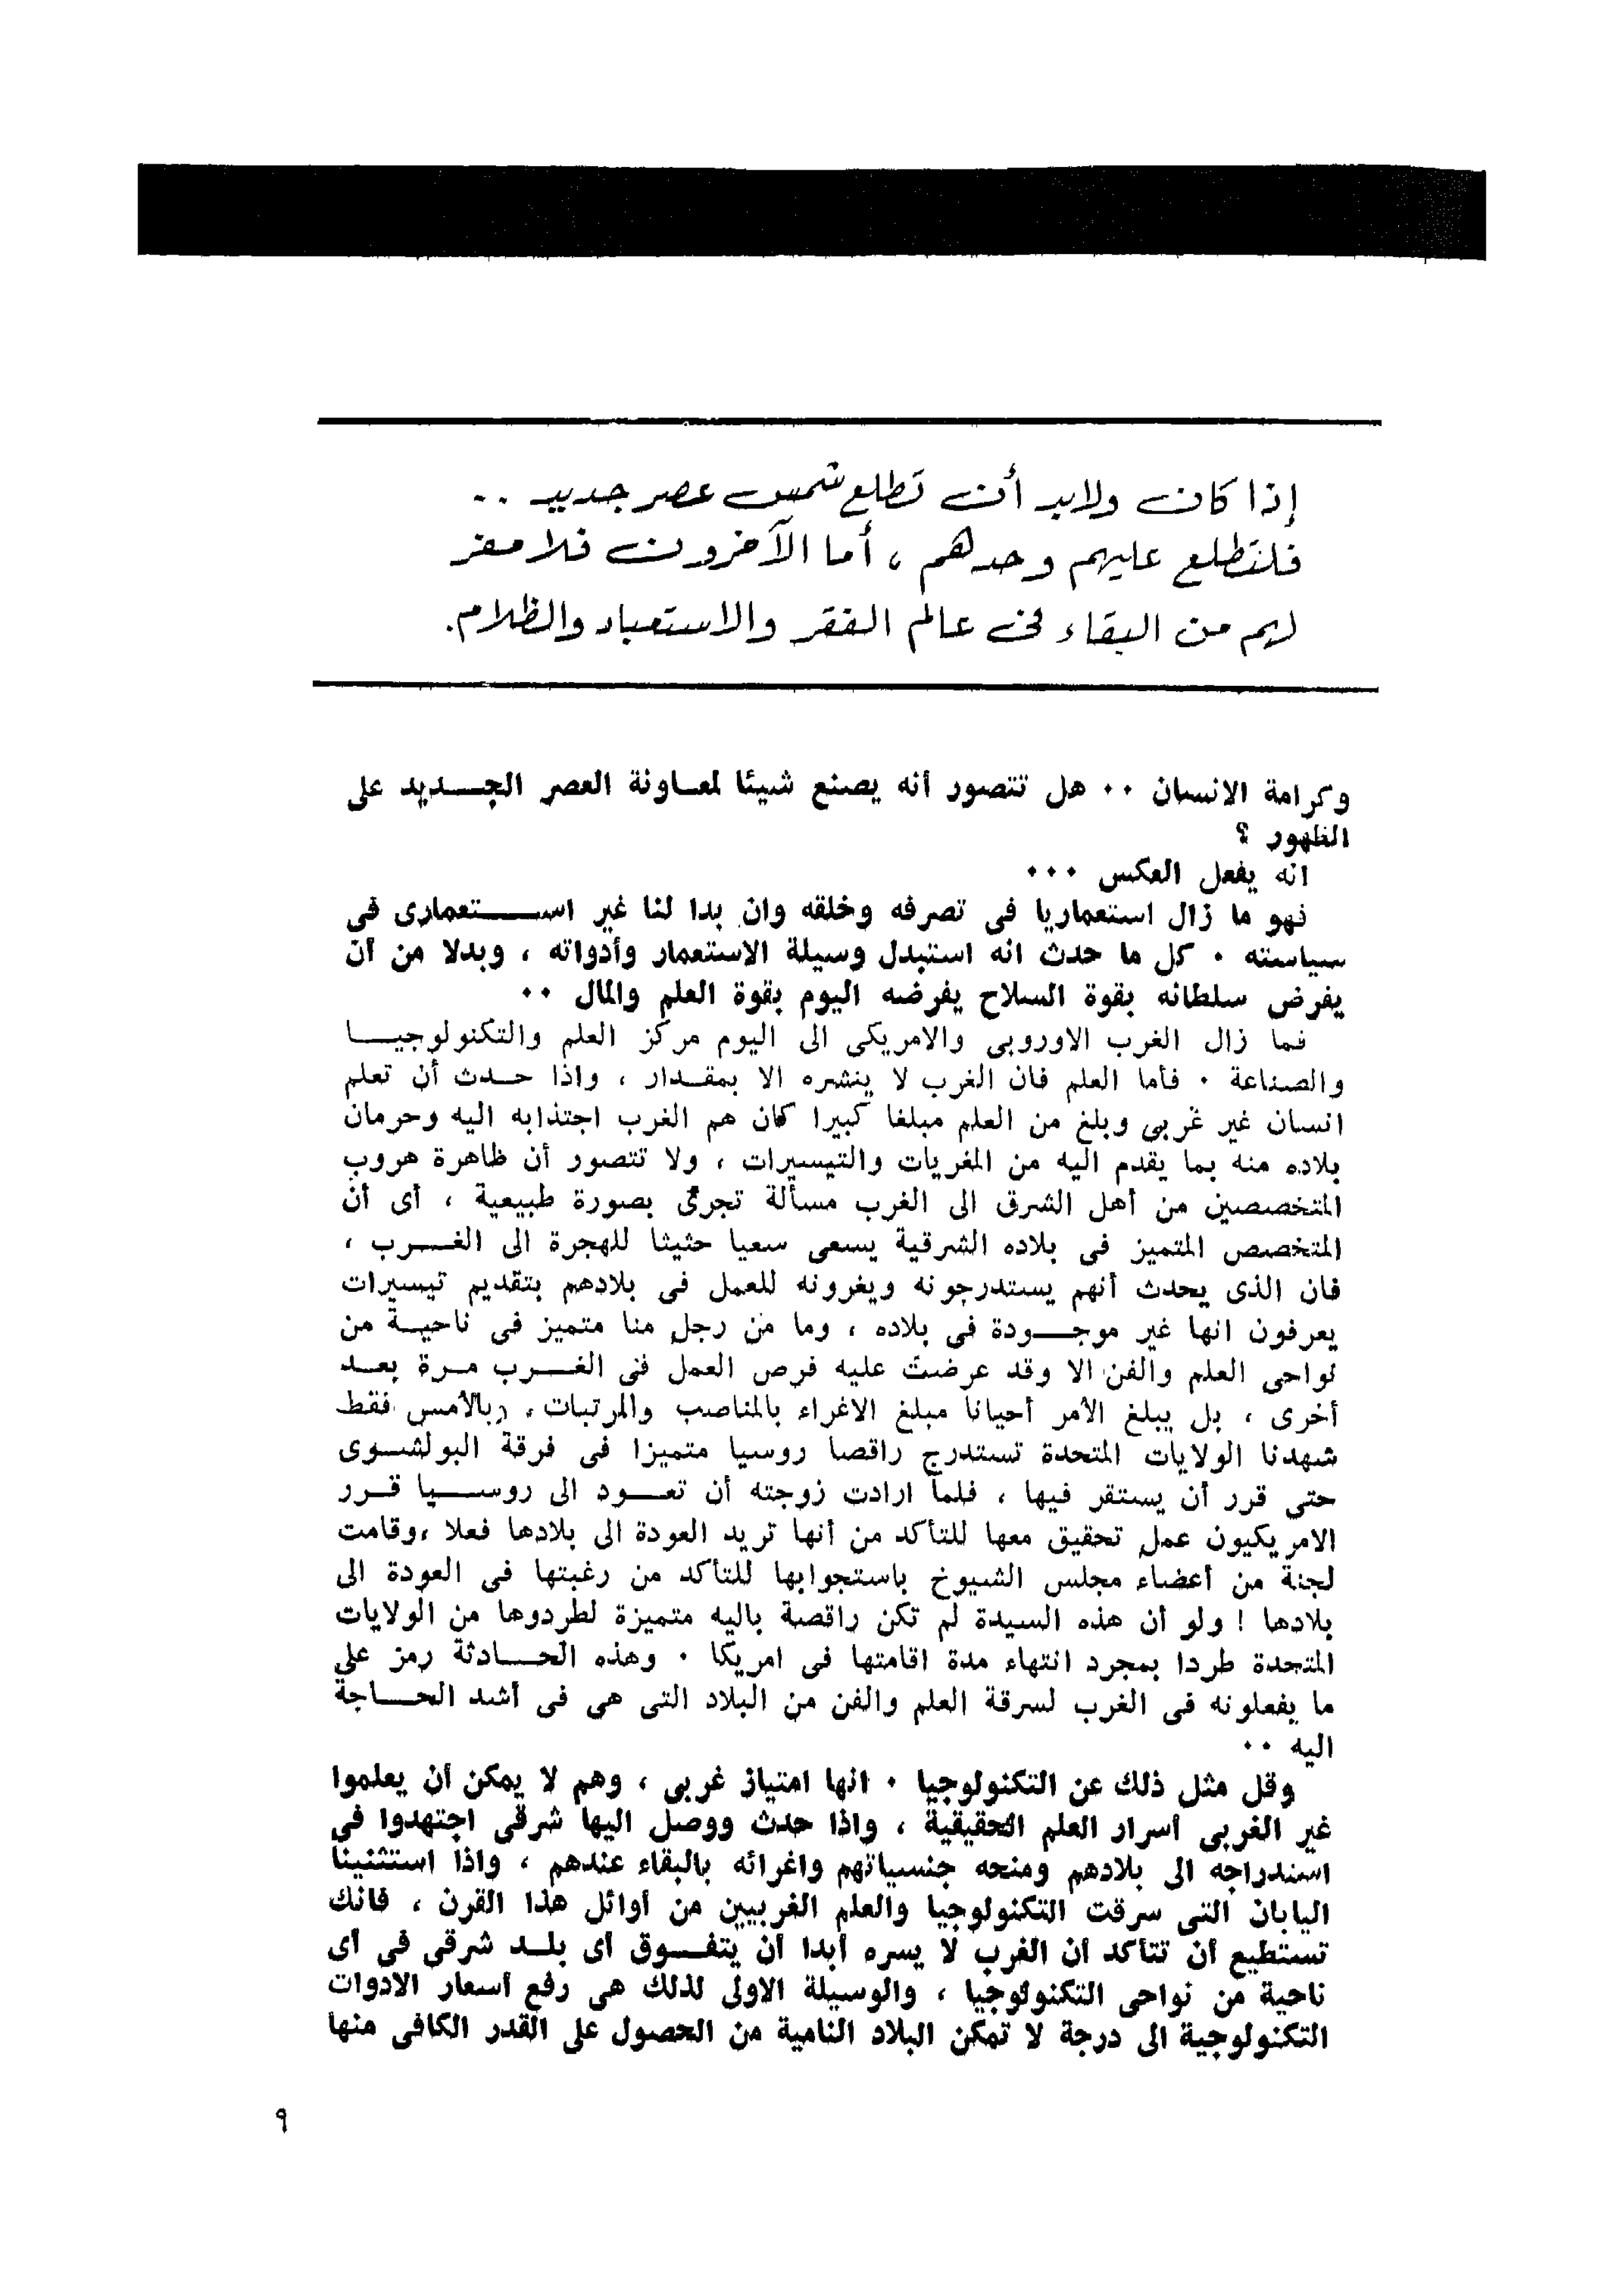 إذا كان ولابد أن تطلع شمس عصر جديد ..
فلتطلع عليهم وحدهم ، أما الآخرون فلا مفر
لهم من البقاء في عالم الفقر والاستعباد والظلام.
وكرامة الانسان ٠٠ هل تتصور أنه يصنع شيئا لمعاونة العصر الجديد على
الظهور ؟
انه يفعل العكس ٠٠٠
فهو ما زال استعماريا فى تصرفه وخلقه وان بدا لنا غير استعمارى فى
سياسته ٠ كل ما حدث انه استبدل وسيلة الاستعمار وأدواته ، وبدلا من أن
يفرض سلطانه بقوة السلاح يفرضه اليوم بقوة العلم والمال ٠٠
فما زال الغرب الاوروبى والامريكى الى اليوم مركز العلم والتكنولوجيا
والصناعة ٠ فأما العلم فان الغرب لا ينشره الا بمقدار ، واذا حدث أن تعلم
انسان غير غربى وبلغ من العلم مبلغا كبيرا كان هم الغرب اجتذابه اليه وحرمان
بلاده منه بما يقدم اليه من المغريات والتيسيرات ، ولا تتصور أن ظاهرة هروب
المتخصصين من أهل الشرق الى الغرب مسألة تجرى بصورة طبيعية ، أى أن
المتخصص المتميز فى بلاده الشرقية يسعى سعيا حثيثا للهجرة الى الغرب ،
فان الذى يحدث أنهم يستدرجونه ويغرونه للعمل فى بلادهم بتقديم تيسيرات
يعرفون انها غير موجودة فى بلاده ، وما من رجل منا متميز فى ناحية من
نواحى العلم والفن الا وقد عرضت عليه فرص العمل فى الغرب مرة بعد
أخرى ، بل يبلغ الأمر أحيانا مبلغ الاغراء بالمناصب والمرتبات ، وبالأمس فقط
شهدنا الولايات المتحدة تستدرج راقصا روسيا متميزا فى فرقة البولشوى
حتى قرر أن يستقر فيها ، فلما ارادت زوجته أن تعود الى روسيا قرر
الامريكيون عمل تحقيق معها للتأكد من أنها تريد العودة الى بلادها فعلا ،وقامت
لجنة من أعضاء مجلس الشيوخ باستجوابها للتأكد من رغبتها فى العودة الى
بلادها ! ولو أن هذه السيدة لم تكن راقصة باليه متميزة لطردوها من الولايات
المتحدة طردا بمجرد انتهاء مدة اقامتها فى امريكا ٠ وهذه الحادثة رمز على
ما يفعلونه فى الغرب لسرقة العلم والفن من البلاد التى هى فى أشد الحاجة
اليه ٠٠
وقل مثل ذلك عن التكنولوجيا ٠ انها امتياز غربى ، وهم لا يمكن أن يعلموا
غير الغربى أسرار العلم الحقيقية ، واذا حدث ووصل اليها شرقى اجتهدوا فى
استدراجه الى بلادهم ومنحه جنسياتهم واغرائه بالبقاء عندهم ، واذا استثنينا
اليابان التى سرقت التكنولوجيا والعلم الغربيين من أوائل هذا القرن ، فانك
تستطيع أن تتأكد أن الغرب لا يسره أبدا أن يتفوق أى بلد شرقى فى أى
ناحية من نواحى التكنولوجيا ، والوسيلة الاولى لذلك هى رفع أسعار الادوات
التكنولوجية الى درجة لا تمكن البلاد النامية من الحصول على القدر الكافى منها
٩